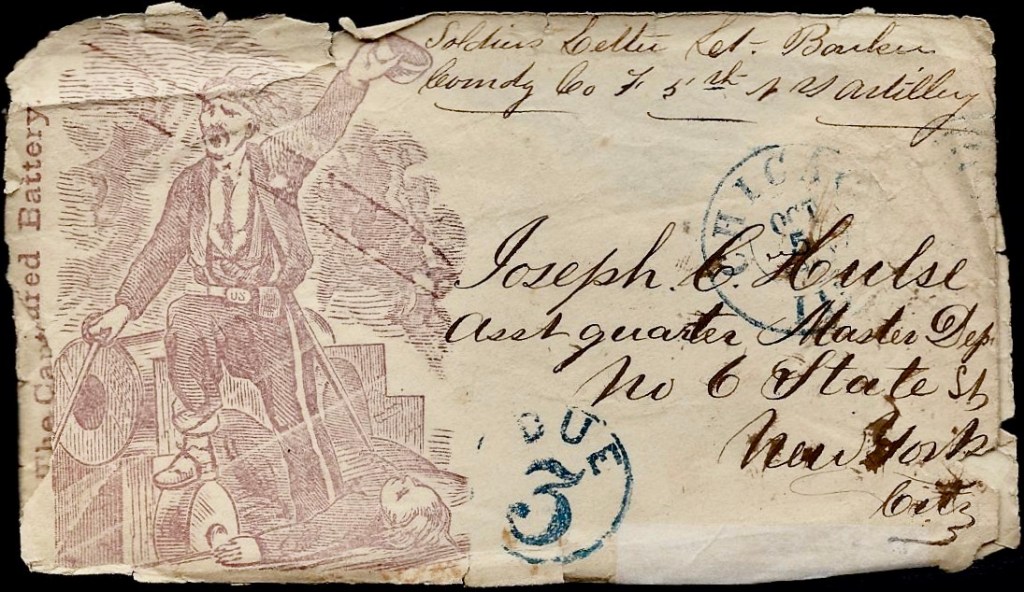 The Captured Battery
Soldiers Letter Lt. Barker
Comdg Co F 5th N Y Artillery
CHICAGO
OCT
5
ILL
Joseph C. Hulse
Asst quarter Master Dep
No 6 State St
New York
City
DUE
3
US